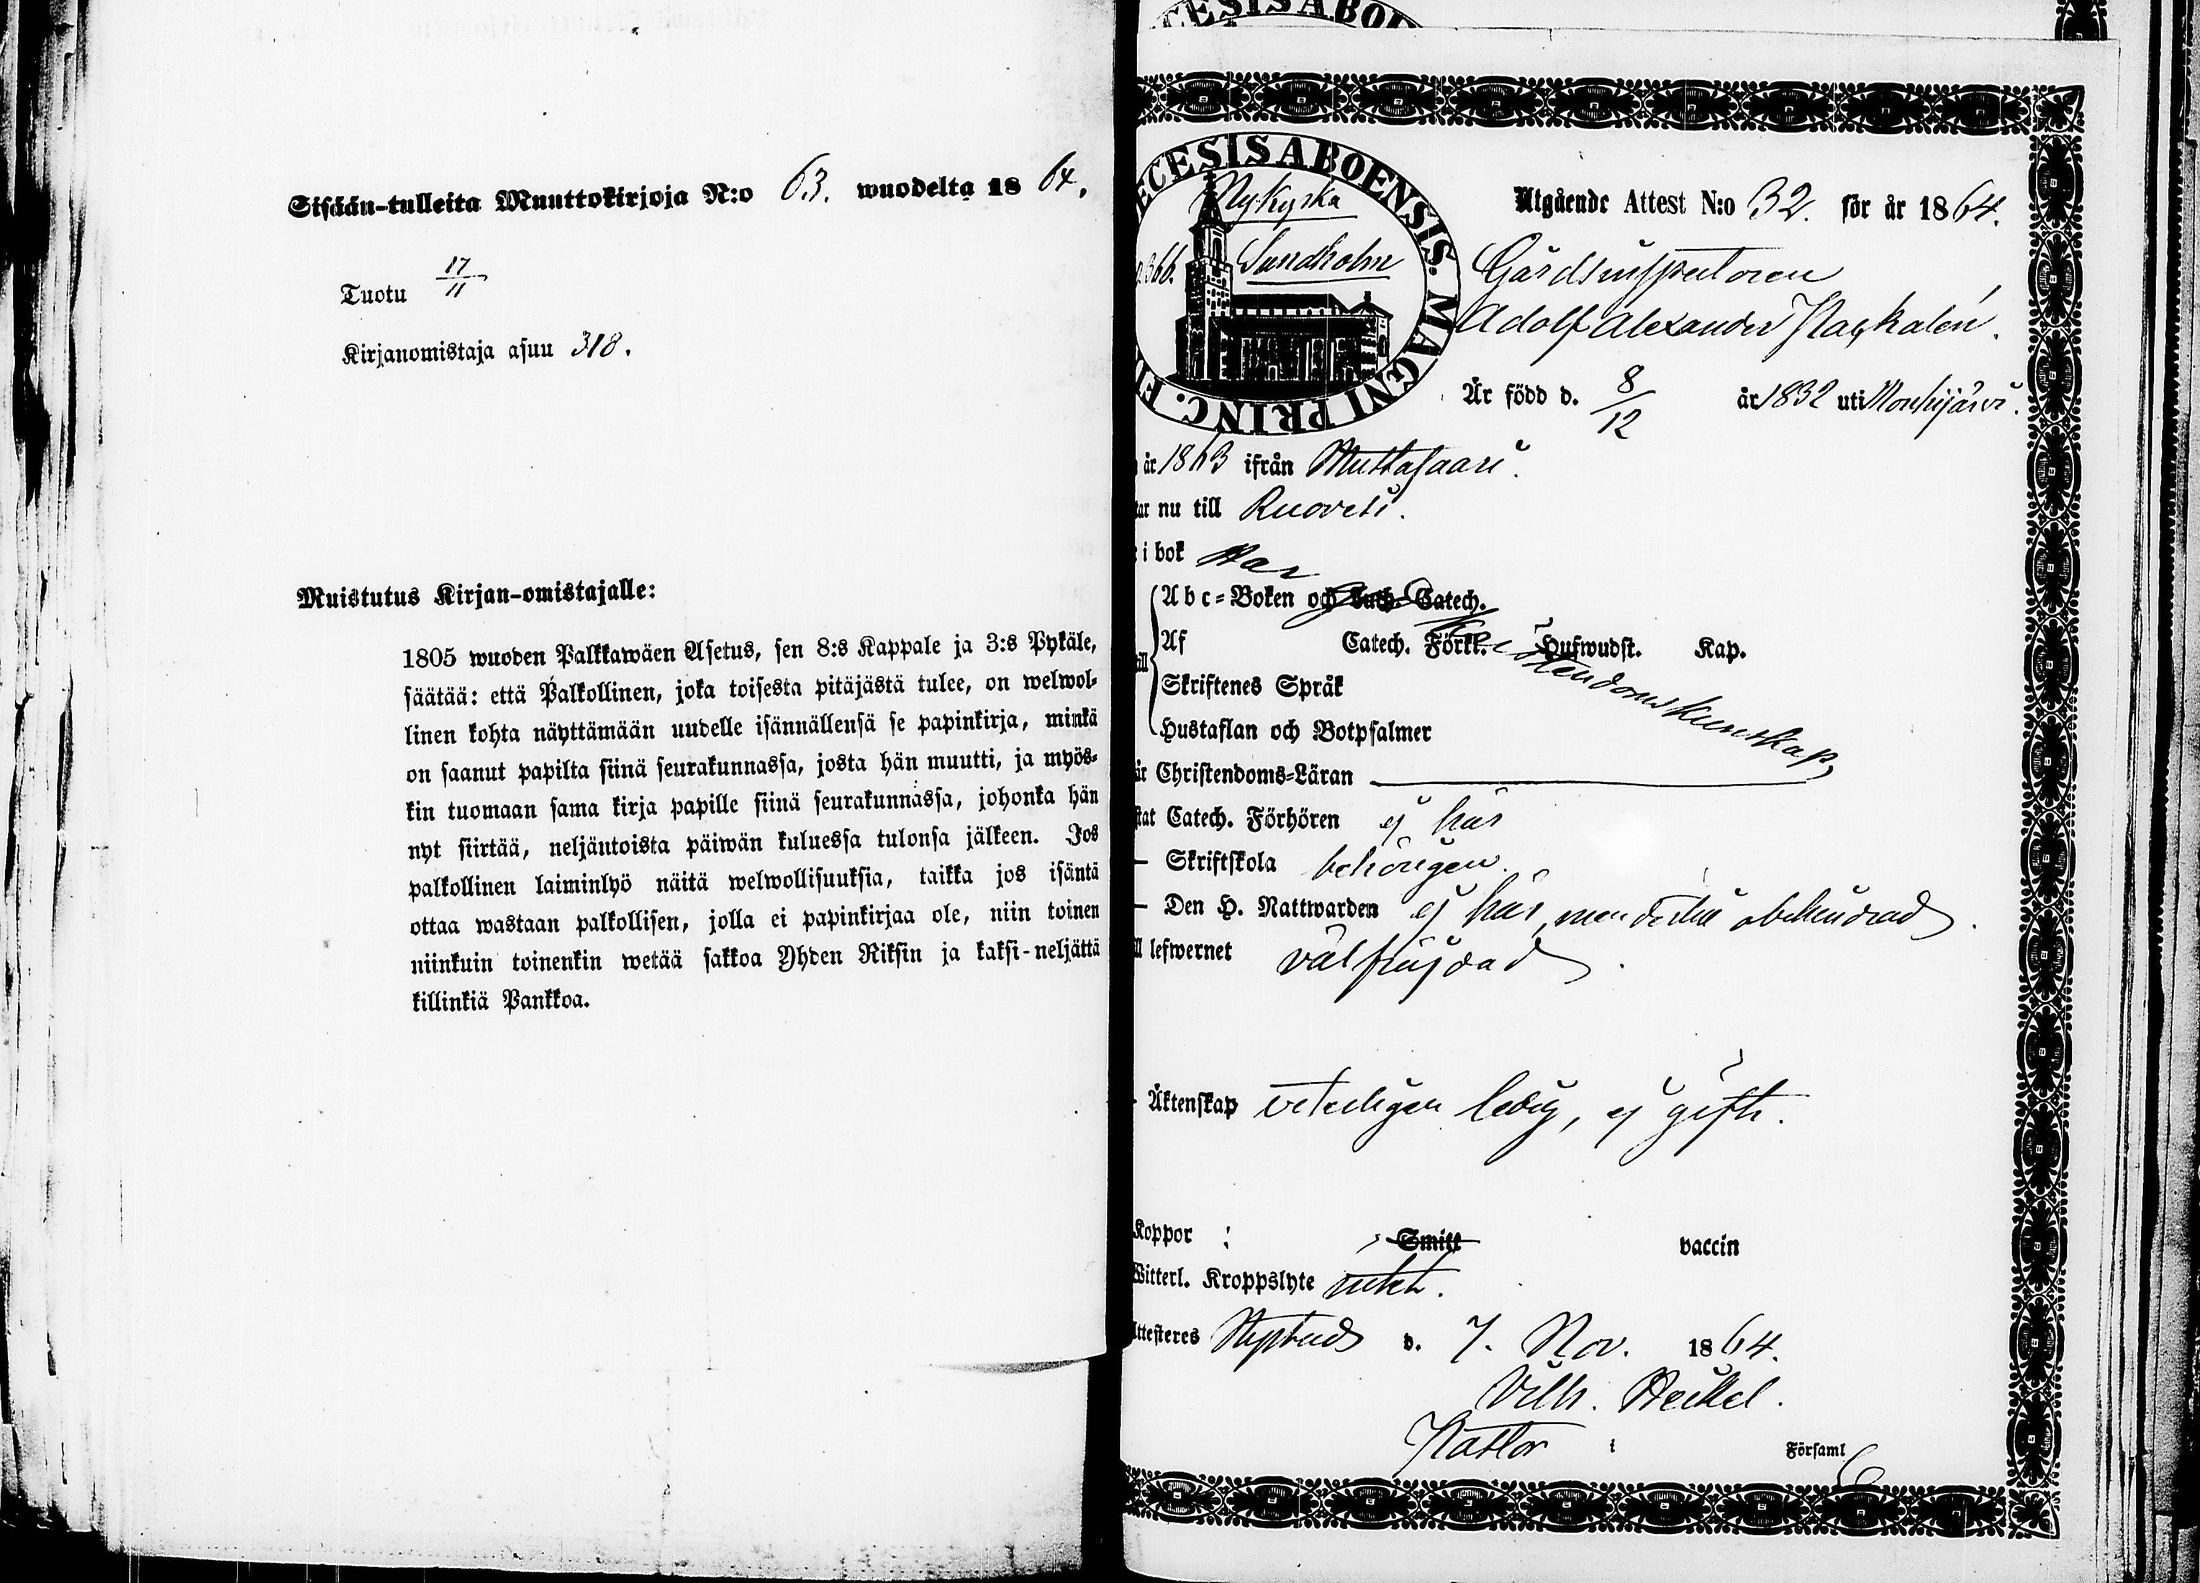 Sisään-tulleita Muuttokirjoja N:o 63. wuodelta 1864.
Tuotu 17/11
Kirjanomistaja asuu 318.
Muistutus Kirjan-omistajalle:
1805 wuoden Palkkawäen Asetus, sen 8:s Kappale ja 3:s Pykäle,
säätää: että Palkollinen, joka toisesta pitäjästä tulee, on welwol-
linen kohta näyttämään uudelle isännällensä se papinkirja, minkä
on saanut papilta siinä seurakunnassa, josta hän muutti, ja myös-
kin tuomaan sama kirja papille siinä seurakunnassa, johonka hän
nyt siirtää, neljäntoista päiwän kuluessa tulonsa jälkeen. Jos
palkollinen laiminlyö näitä welwollisuuksia, taikka jos isäntä
ottaa wastaan palkollisen, jolla ei papinkirjaa ole, niin toinen
niinkuin toinenkin wetää sakkoa Yhden Riksin ja kaksi-neljättä
killinkiä Pankkoa.
ECESIS ABOENSIS. MAGNI PRINC. F
Nykyrka
Sundholm
366.
Utgående Attest N:o 32. för år 1864.
Gårdsinspectoren
Adolf Alexander
Är född d. 8/12 år 1832 uti Mouhijärvi.
år 1863 ifrån Mustasaari.
tar nu till Ruovesi.
i bok
Har god Christendomskunskap
Abc-Boken och Luth. Catech.
Af Catech. Förkl. Hufwudst. Kap.
Skriftenes Språk
Hustaflan och Botpsalmer
är Christendoms-Läran
stat Catech. Förhören ej här
— Skriftskola behörigen.
— Den H. Nattwarden ej här, men dertill obehindrad.
ll lefwernet välfrejdad.
Äktenskap veterligen ledig, ej gift.
Koppor : Smitt vaccin
Witterl. Kroppslyte intet.
Attesteres Nystad d. 7. Nov. 1864.
Vilh. Heikel.
Pastor i Församl